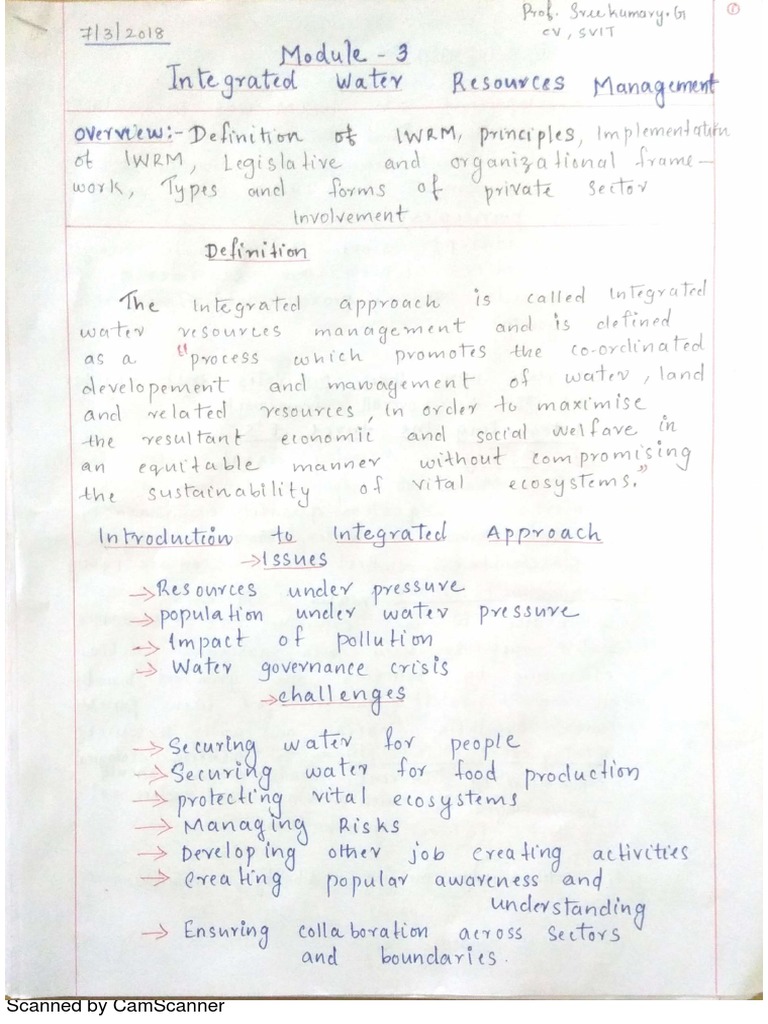 Prof. Sreekumary.G
①
7/3/2018
CV, SVIT
Module - 3
Integrated Water Resources Management
Overview:- Definition of IWRM, principles, Implementation
of IWRM, Legislative and organizational frame-
work, Types and forms of private sector
Involvement
Definition
The integrated approach is called integrated
water resources management and is defined
as a "process which promotes the co-ordinated
developement and management of water, land
and related resources, in order to maximise
the resultant economic and social welfare in
an equitable manner without compromising
the sustainability of vital ecosystems."
Introduction to Integrated Approach
→Issues
→Resources under pressure
→population under water pressure
→Impact of pollution
→Water governance crisis
→challenges
→Securing water for people
→Securing water for food production
→protecting vital ecosystems
→Managing Risks
→Developing other job creating activities
→creating popular awareness and
understanding
→Ensuring collaboration across sectors
and boundaries.
Scanned by CamScanner